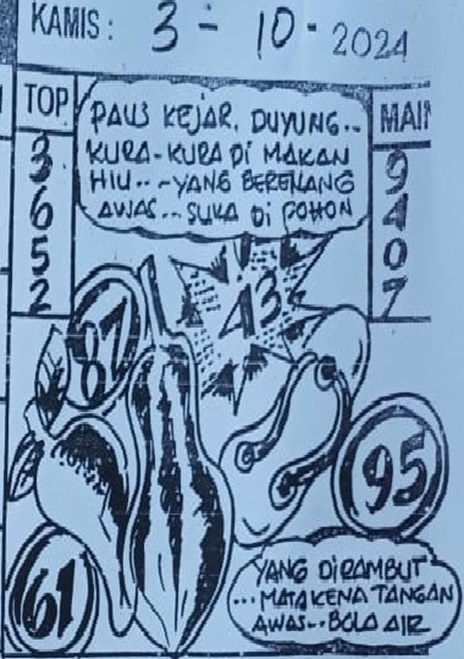 KAMIS: 3 - 10 - 2024
TOP
PAUS KEJAR. DUYUNG..
KURA-KURA Di MAKAN
HIU.. -YANG BERENANG
AWAS... SUKA Di POHON
MAIN
3
6
5
2
9
4
0
7
43
87
95
61
YANG DiRAMBUT
...MATA KENA TANGAN
AWAS... BOLA AIR